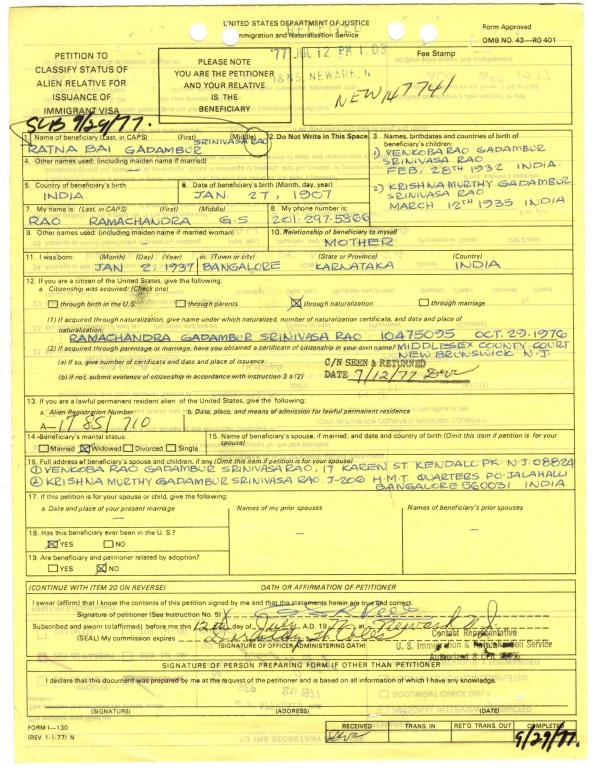 UNITED STATES DEPARTMENT OF JUSTICE
Immigration and Naturalization Service
Form Approved
OMB NO. 43—RO 401
PETITION TO
CLASSIFY STATUS OF
ALIEN RELATIVE FOR
ISSUANCE OF
IMMIGRANT VISA
PLEASE NOTE
YOU ARE THE PETITIONER
AND YOUR RELATIVE
IS THE
BENEFICIARY
'77 JUL 12 PM 1:03
I&NS, NEWARK, N.J.
Fee Stamp
NEW 147741
SCB 9/29/77.
1. Name of beneficiary (Last, in CAPS) (First) (Middle)
RATNA BAI GADAMBUR SRINIVASA RAO
2. Do Not Write in This Space
3. Names, birthdates and countries of birth of beneficiary's children:
1) VENKOBA RAO GADAMBUR
SRINIVASA RAO
FEB. 28TH 1932 INDIA
2) KRISHNA MURTHY GADAMBUR
SRINIVASA RAO
MARCH 12TH 1935 INDIA
4. Other names used: (including maiden name if married)
5. Country of beneficiary's birth
INDIA
6. Date of beneficiary's birth (Month, day, year)
JAN. 27, 1907
7. My name is: (Last, in CAPS) (First) (Middle)
RAO RAMACHANDRA G.S
8. My phone number is:
201-297-5866
9. Other names used: (including maiden name if married woman)
10. Relationship of beneficiary to myself
MOTHER
11. I was born: (Month) (Day) (Year) in: (Town or city) (State or Province) (Country)
JAN 2, 1937 BANGALORE KARNATAKA INDIA
12. If you are a citizen of the United States, give the following:
a. Citizenship was acquired: (Check one)
through birth in the U.S. through parents ☒ through naturalization through marriage
(1) If acquired through naturalization, give name under which naturalized, number of naturalization certificate, and date and place of
naturalization:
RAMACHANDRA GADAMBUR SRINIVASA RAO 10475095 OCT. 29. 1976
(2) If acquired through parentage or marriage, have you obtained a certificate of citizenship in your own name? MIDDLESEX COUNTY COURT
NEW BRUNSWICK N.J.
(a) If so, give number of certificate and date and place of issuance.
C/N SEEN & RETURNED
(b) If not, submit evidence of citizenship in accordance with instruction 3 a (2)
DATE 7/12/77
13. If you are a lawful permanent resident alien of the United States, give the following:
a. Alien Registration Number: b. Date, place, and means of admission for lawful permanent residence
A- 17 851 710
14. Beneficiary's marital status:
☐ Married ☒ Widowed ☐ Divorced ☐ Single
15. Name of beneficiary's spouse, if married, and date and country of birth (Omit this item if petition is for your spouse)
16. Full address of beneficiary's spouse and children, if any (Omit this item if petition is for your spouse)
① VENKOBA RAO GADAMBUR SRINIVASA RAO, 17 KAREN ST. KENDALL PK. N.J. 08824
② KRISHNA MURTHY GADAMBUR SRINIVASA RAO. J-206 H.M.T. QUARTERS P.O. JALAHALLI
BANGALORE 560031 INDIA
17. If this petition is for your spouse or child, give the following:
a. Date and place of your present marriage
Names of my prior spouses
Names of beneficiary's prior spouses
18. Has this beneficiary ever been in the U. S.?
☒ YES ☐ NO
19. Are beneficiary and petitioner related by adoption?
☐ YES ☒ NO
(CONTINUE WITH ITEM 20 ON REVERSE) OATH OR AFFIRMATION OF PETITIONER
I swear (affirm) that I know the contents of this petition signed by me and that the statements herein are true and correct.
Signature of petitioner (See Instruction No. 5) X
Subscribed and sworn to (affirmed) before me this 12th day of July, A.D. 19 77 at Newark N.J.
(SEAL) My commission expires
(SIGNATURE OF OFFICER ADMINISTERING OATH)
Contact Representative
U. S. Immigration & Naturalization Service
SIGNATURE OF PERSON PREPARING FORM IF OTHER THAN PETITIONER
I declare that this document was prepared by me at the request of the petitioner and is based on all information of which I have any knowledge.
(SIGNATURE) (ADDRESS) (DATE)
FORM I—130
(REV. 1-1-77) N
RECEIVED TRANS. IN RET'D. TRANS. OUT COMPLETED
9/29/77.